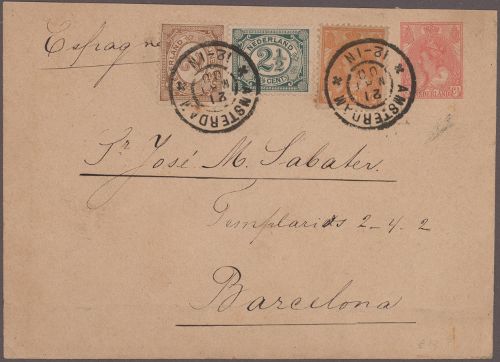 Espagne
NEDERLAND
2½
CENTS
AMSTERDAM
12-1N
21
AMSTERDAM
12-1N
21
Sr José M. Sabater
Templarios 2-4. 2
Barcelona